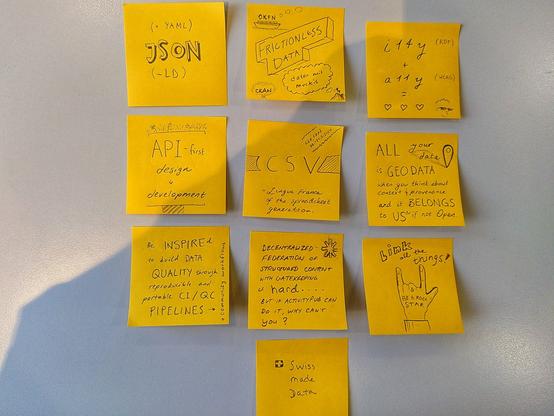 (+ YAML)
JSON
(-LD)
OKFN
FRICTIONLESS
DATA
CKAN
i14y (RDF)
+
a11y (WCAG)
=
♡ ♡ ♡
API-first
design
development
CSV
Lingua franca
of the spreadsheet
generation.
ALL your
data
is GEODATA
when you think about
context & provenance
and it BELONGS
to US* if not Open.
Be INSPIREd
to build DATA
QUALITY through
reproducible and
portable CI/QC
PIPELINES →
DECENTRALIZED
FEDERATION OF
STRUCTURED CONTENT
WITH GATEKEEPING
u hard....
BUT IF ACTIVITYPUB CAN
DO IT, WHY CAN'T
you?
Link all the
things!
BE A ROCK
STAR
Swiss
made
Data